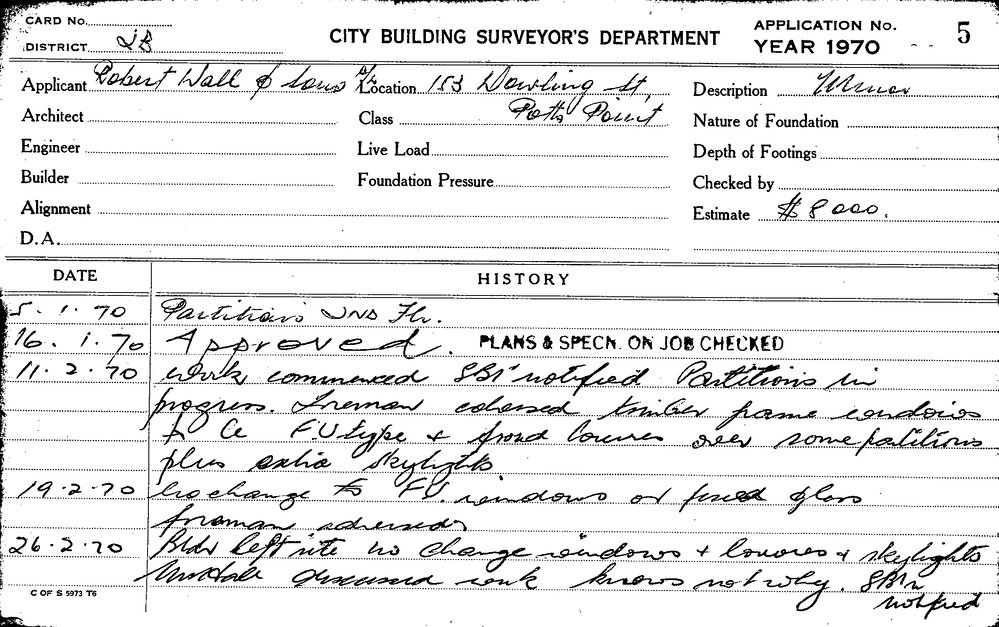 CARD No.
DISTRICT 2B
CITY BUILDING SURVEYOR'S DEPARTMENT
APPLICATION No. 5
YEAR 1970
Applicant Robert Wall & Sons P/L
Location 153 Dowling St,
Potts Point
Description Minor
Architect
Class
Nature of Foundation
Engineer
Live Load
Depth of Footings
Builder
Foundation Pressure
Checked by
Alignment
Estimate $8000.
D.A.
DATE HISTORY
5.1.70 Partitions 2ND Flr.
16.1.70 Approved. PLANS & SPECN. ON JOB CHECKED
11.2.70 work commenced SBI notified Partitions in
progress. Foreman timber frame windows
to be type & fixed louvres over some partitions
plus extra skylights
19.2.70 No change to windows or fixed glass
foreman advised
26.2.70 Bldr left site no change windows + louvres + skylights
discussed work knows not why.
notified
C OF S 5973 T6